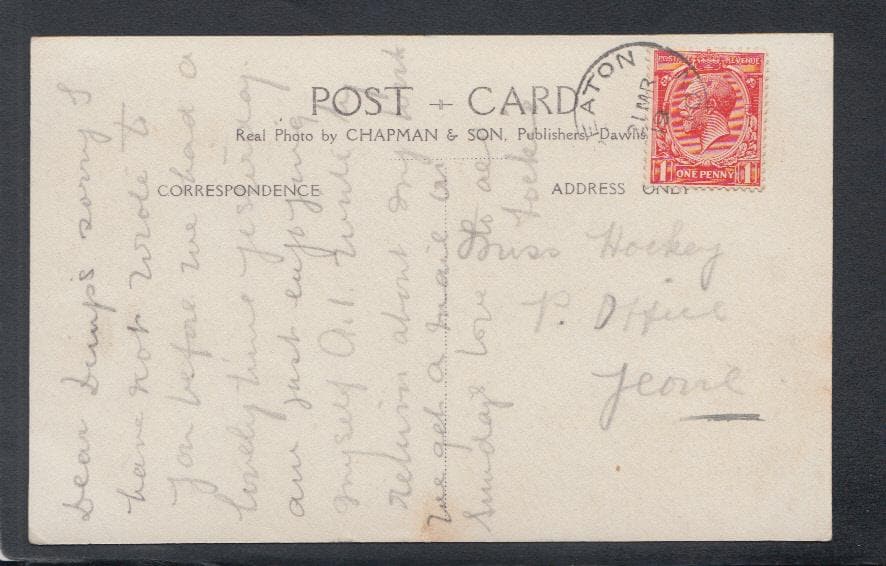 POST CARD
Real Photo by CHAPMAN & SON, Publishers, Dawlis
CORRESPONDENCE
ADDRESS ONLY
EATON
21 MR
POSTAGE REVENUE
1D ONE PENNY 1D
Dear Dimps sorry I
have not wrote to
you before we had a
lovely time yesterday.
am just enjoying
myself A.1. Will
return about 6
we get a mail in
Sunday love to all
Miss Hockey
P. Office